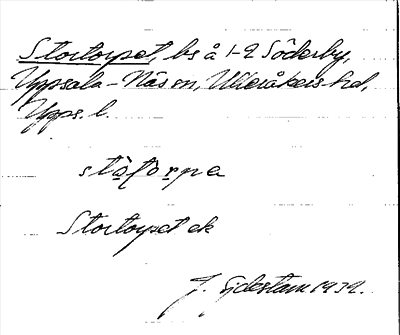 Stortorpet, bs å 1-2 Söderby,
Uppsala-Näs sn, Ulleråkers hd,
Upps. l.
sto̱ṭo̱rpe
Stortorpet ek
J. Sjöstam 1932.